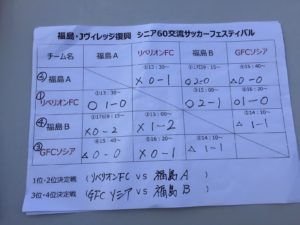 福島・Jヴィレッジ復興 シニア60交流サッカーフェスティバル
チーム名 福島A リベリオンFC 福島B GFCソシア
② 福島A ①12:30~ × 0-1 ○2-0 △0-0
① リベリオンFC ①12:30~ ○1-0 ③15:00~ ○2-1 ②16:20~ ○1-0
④ 福島B × 0-2 ③13:00~ × 1-2 ②14:10~ △ 1-1
③ GFCソシア △0-0 ②16:20~ × 0-1 ②14:10~ △ 1-1
1位・2位決定戦 (リベリオンFC VS 福島A )
3位・4位決定戦 (GFCソシア VS 福島B )